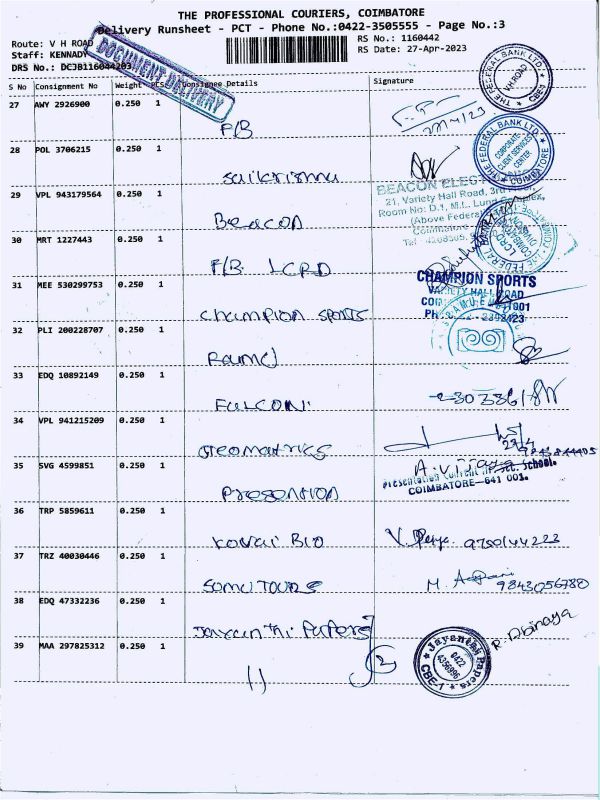 THE PROFESSIONAL COURIERS, COIMBATORE
Delivery Runsheet - PCT - Phone No.:0422-3505555 - Page No.:3
Route: V H ROAD
RS No.: 1160442
Staff: KENNADY
RS Date: 27-Apr-2023
DRS No.: DCJB116044203
DOCUMENT DELIVERY
S No Consignment No Weight Pcs Consignee Details Signature
27 AWY 2926900 0.250 1
F/B
27/4/23
THE FEDERAL BANK LTD. V.H.ROAD CBE-1
28 POL 3706215 0.250 1
Saikrishna
THE FEDERAL BANK LTD. CORPORATE CLIENT SERVICES CENTER COIMBATORE
29 VPL 943179564 0.250 1
Beacon
BEACON ELEC
21, Variety Hall Road, 3rd
Room No: D.1, M.L. Complex,
(Above Federal
30 MRT 1227443 0.250 1
F/B LCRD
LCRD
31 MEE 530299753 0.250 1
Champion Sports
CHAMPION SPORTS
VARIETY HALL ROAD
32 PLI 200228707 0.250 1
33 EDQ 10892149 0.250 1
FULCON
34 VPL 941215209 0.250 1
Geomatrics
27/4
35 SVG 4599851 0.250 1
Presention
Presentation Convent School.
COIMBATORE-641 001.
36 TRP 5859611 0.250 1
Kovai Bio
9750144223
37 TRZ 40030446 0.250 1
Somu Tours
9843056780
38 EDQ 47332236 0.250 1
Jayanthi Papers
R. Dbinaya
39 MAA 297825312 0.250 1
11
2
Jayanthi Papers 0422 4356996 CBE-1